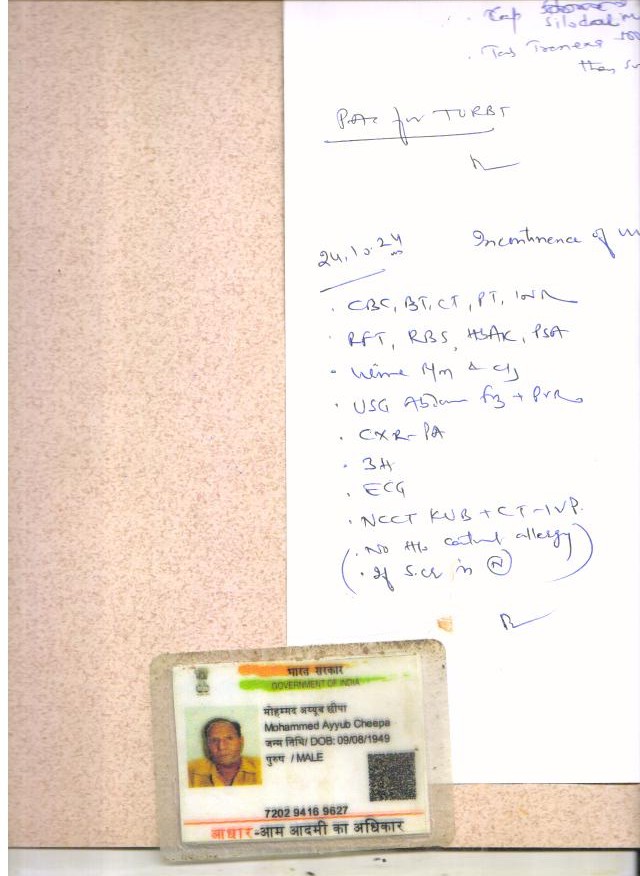 . Cap
Silodal
. Tab Tranexa
then
PAC for TURBT
24.10.24
Incontinence of
. CBC, BT, CT, PT, INR
. RFT, RBS, HBAIC, PSA
- Urine R/m & C/S
. USG Abdomen FB + PVR
. CXR-PA
. 3H
. ECG
. NCCT KUB + CT-IVP.
. No H/o contrast allergy
. If S.Cr is N
भारत सरकार
GOVERNMENT OF INDIA
मोहम्मद अय्यूब छीपा
Mohammed Ayyub Cheepa
जन्म तिथि/ DOB: 09/08/1949
पुरुष / MALE
7202 9416 9627
आधार-आम आदमी का अधिकार